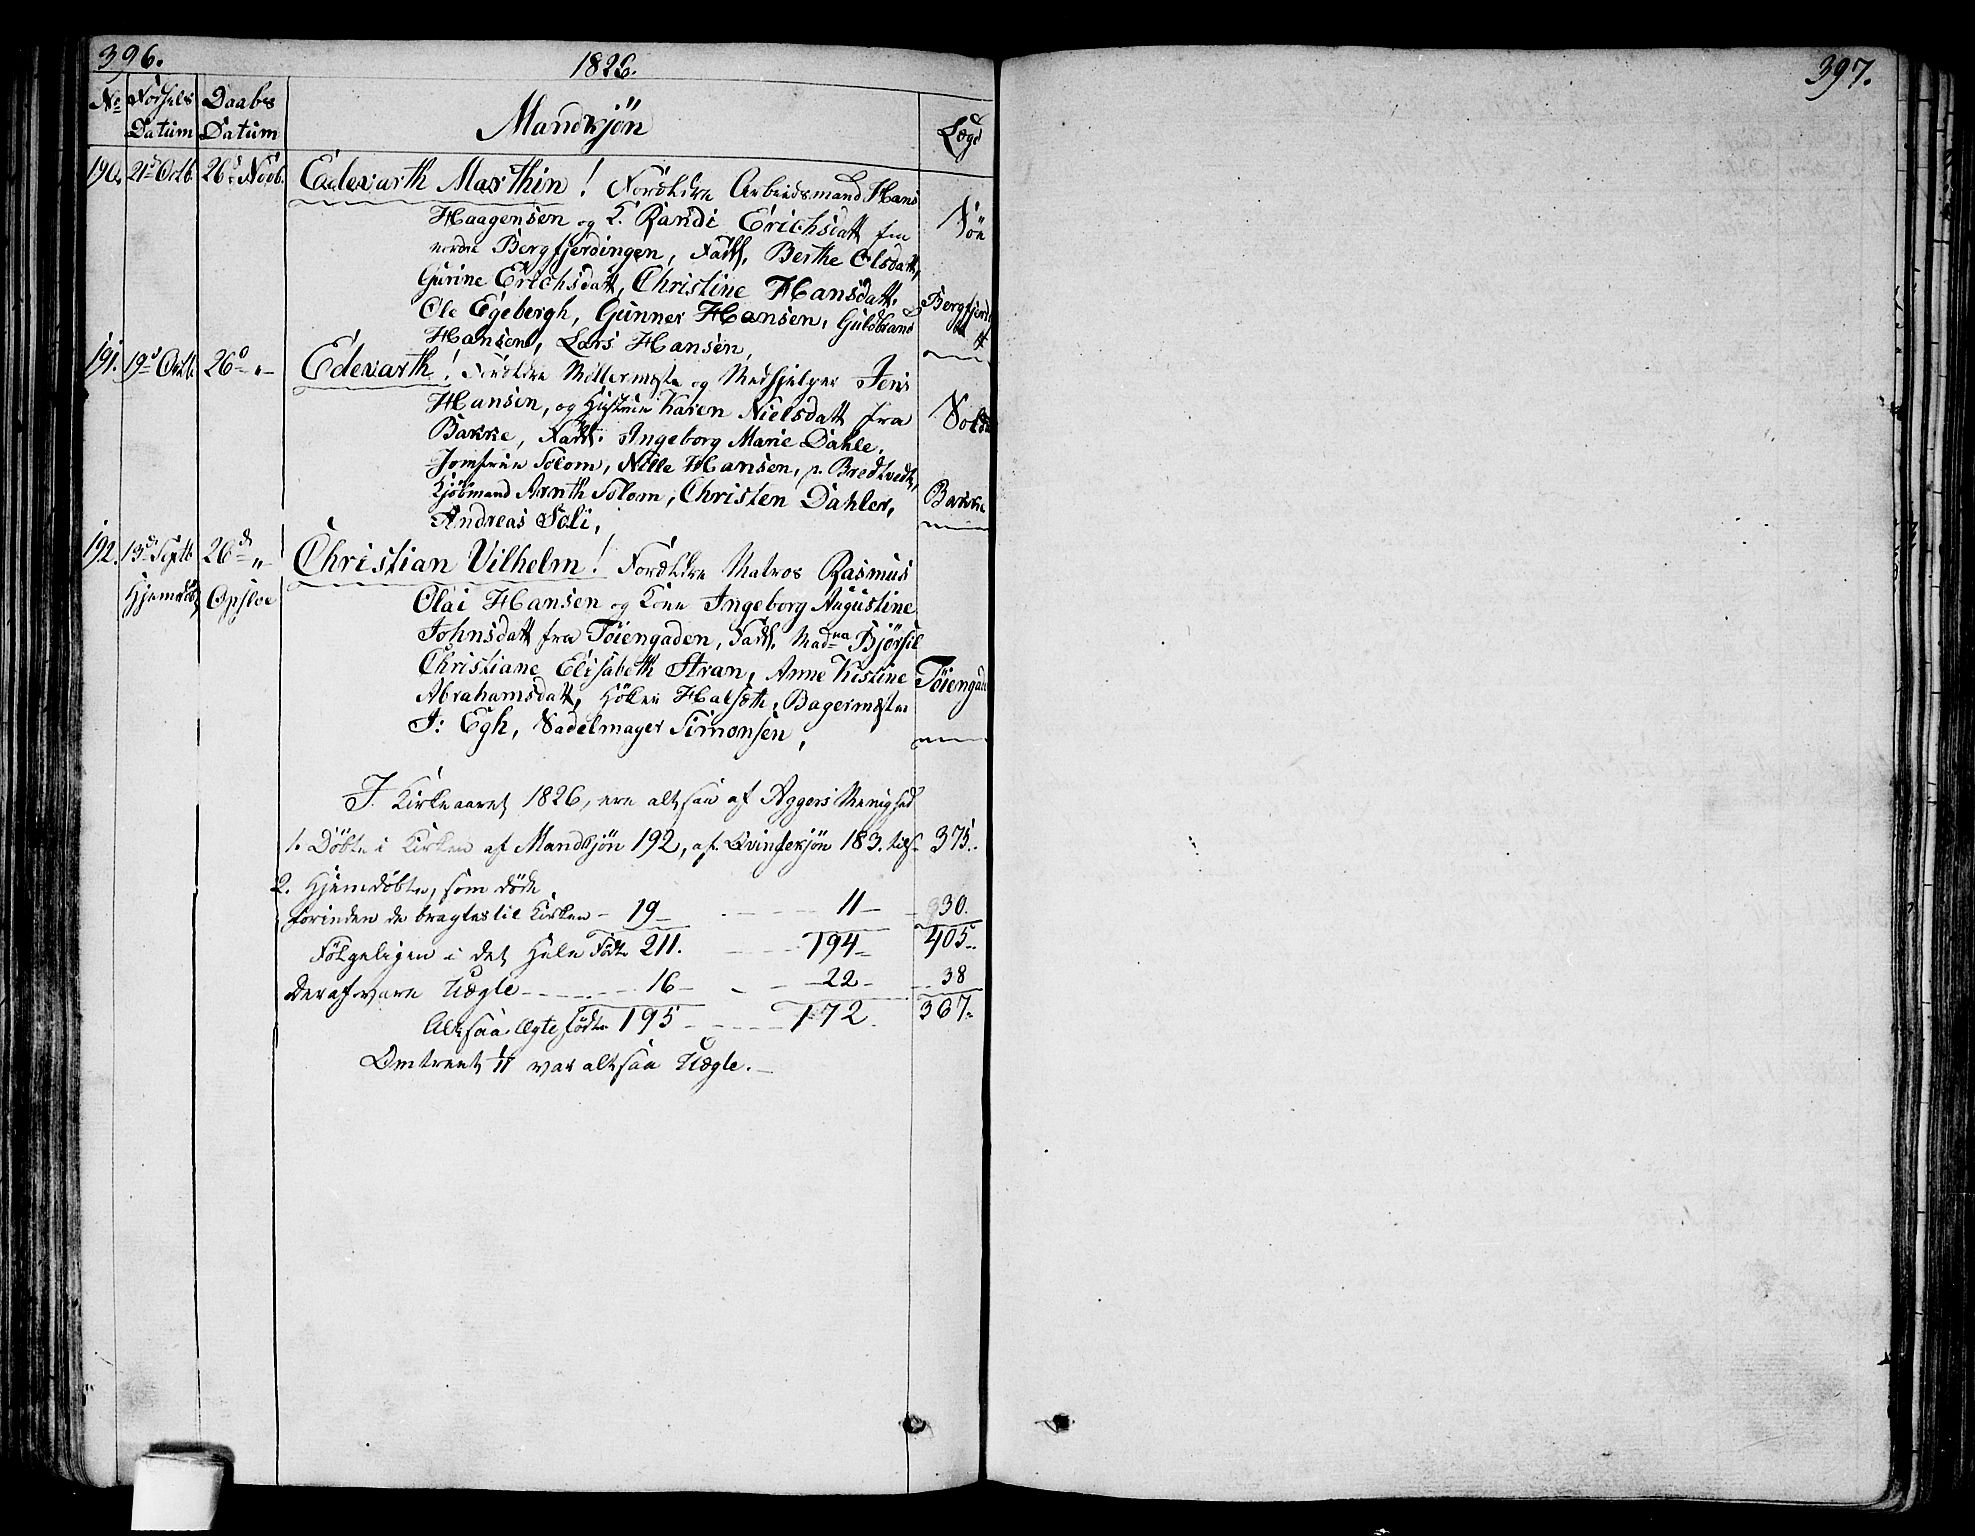 396.
1826.
397.
No Fødsels Datum Daabs Datum Mandkjön Lægd
190. 21d Octb. 26d Novb. Edevarth Marthin! Forældre Arbeidsmand Hans
Haagensen og K. Randi Erichsdatt fra
nordre Bergfjerdingen, Fadd. Berthe Olsdatt,
Gurine Erichsdatt, Christine Hansdatt.
Ole Egebergh, Gunner Hansen, Guldbrand
Hansen, Lars Hansen,
Bergfjerd
191. 19d Octb. 26d " Edevarth! Forældre Møllermester og Medhjelper Jens
Hansen, og Hustrue Karen Nielsdatt fra
Bakke, Fadd. Ingeborg Marie Dahle,
Jomfrue Solom, Nille Hansen, p. Bredtvedt,
Kjöbmand Arnth Solom, Christen Dahler,
Andreas Soli,
Bakke
192. 13d Septb. 26d " Christian Vilhelm! Forældre Matros Rasmus
Hjemdöbt Opsloe Olai Hansen og Kone Ingeborg Augustine
Johnsdatt fra Töiengaden, Fadd. Madna Bjørsil
Christiane Elisabeth Stran, Anne Kistine
Abrahamsdatt, Höker Halseth, Bagermester
J: Egh, Sadelmager Simonsen,
Töiengade
I Kirkeaaret 1826, ere altsaa af Aggers Menighed
1. Döbte i Kirken af Mandkjön 192, af Qvindekjön 183. tils. 375.
2. Hjemdöbte, som döde
forinden de bragtes til Kirken - 19 - 11 - 30.
Fölgeligen i det Hele Födte 211. 194 - 405.
Deraf vare Uægte - 16 - 22 - 38
Altsaa ægte födte 195 - 172. 367.
Omtrent 1/11 var altsaa Uægte.